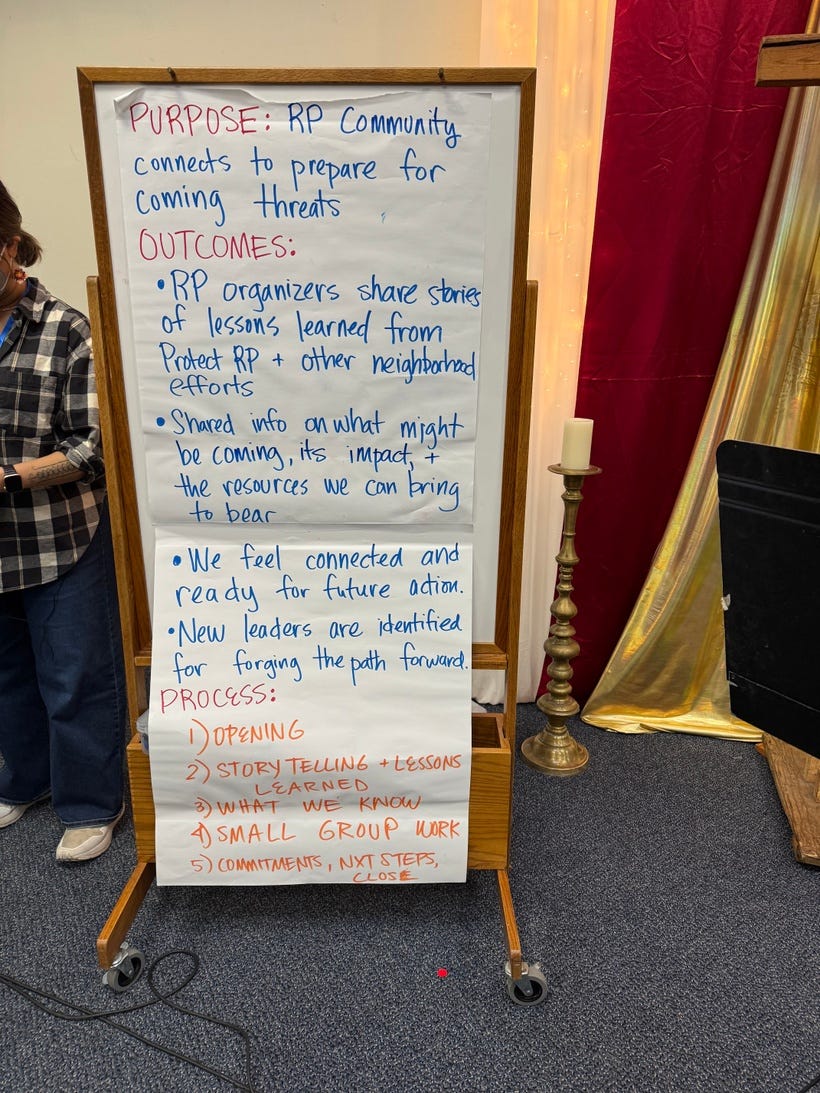 PURPOSE: RP Community
connects to prepare for
coming threats
OUTCOMES:
• RP organizers share stories
of lessons learned from
Protect RP + other neighborhood
efforts
• Shared info on what might
be coming, its impact, +
the resources we can bring
to bear
• We feel connected and
ready for future action.
• New leaders are identified
for forging the path forward.
PROCESS:
1) OPENING
2) STORY TELLING + LESSONS
LEARNED
3) WHAT WE KNOW
4) SMALL GROUP WORK
5) COMMITMENTS, NXT STEPS,
CLOSE